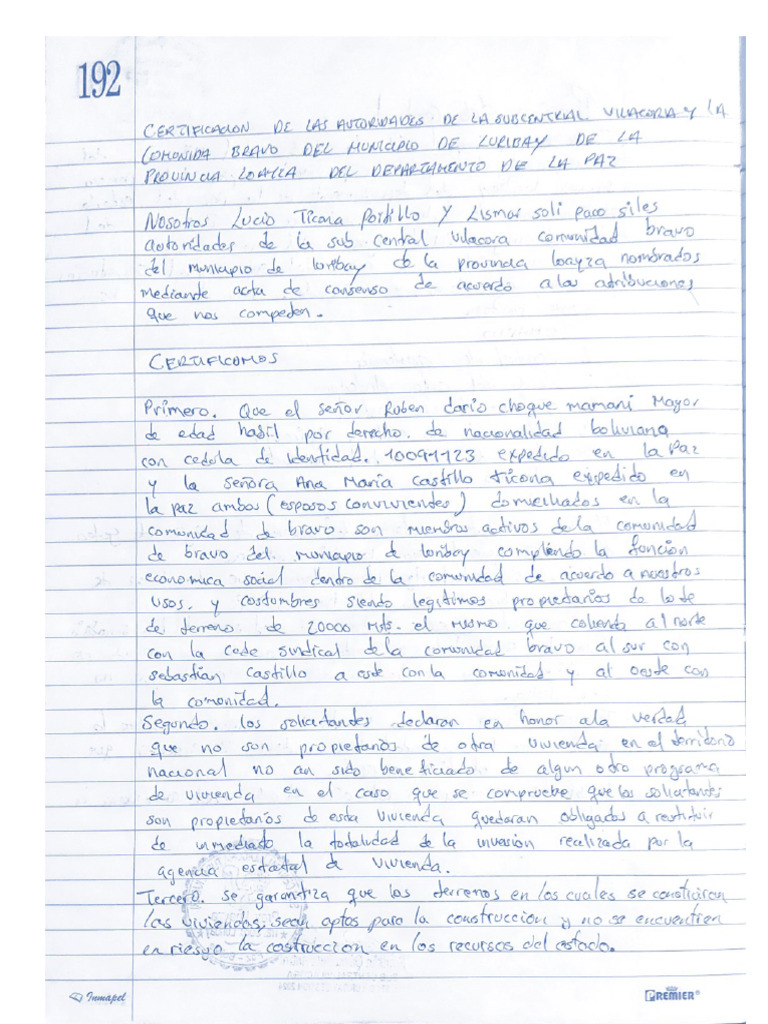 192
CERTIFICACION DE LAS AUTORIDADES DE LA SUBCENTRAL VILACORA Y LA
COMONIDA BRAVO DEL MUNICIPIO DE LURIBAY DE LA
PROVINCIA LOAYZA DEL DEPARTAMENTO DE LA PAZ
Nosotros Lucio Ticona Portillo Y Lismar soli paco siles
autoridades de la sub central vilacora comunidad bravo
del municipio de loribay de la provincia loayza nombrados
mediante acta de consenso de acuerdo a las atribuciones
que nos competen.
CERTIFICOMOS
Primero. Que el señor Ruben dario choque mamani Mayor
de edad habil por derecho. de nacionalidad boliviana
con cedola de identidad. 10091123 expedido en la Paz
y la señora Ana Maria Castillo ticona expedido en
la paz ambos (esposos convivientes) domicilados en la
comunidad de bravo son miembros activos de la comonidad
de bravo del municipio de loribay compliendo la función
economica social dentro de la comonidad de acuerdo a nuestros
usos. y costumbres siendo legitimos propietarios de lote
de terreno de 20000 Mts. el mismo que colinda al norte
con la cede sindical de la comunidad bravo al sur con
sebastián castillo a este con la comonidad y al oeste con
la comonidad.
Segundo. los solicitantes declaran en honor ala verdad
que no son propietarios de otra vivienda en el territorio
nacional no an sido beneficiado de algun otro programa
de vivienda en el caso que se compruebe que los solicitantes
son propietarios de esta vivienda quedaran obligados a restituir
de inmediato la totalidad de la invesión realizada por la
agencia estatal de vivienda.
Tercero. se garantiza que los terrenos en los cuales se construiran
las viviendas, sean aptos para la construccion y no se encuentren
en riesgo la costruccion en los recursos del estado.
Inmapel
PREMIER®